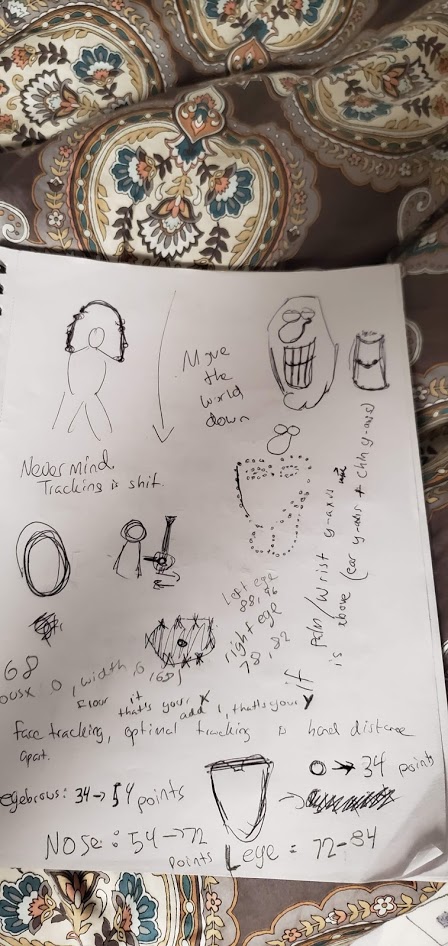 Move
the
world
down
Nevermind.
Tracking is shit.
Left eye
88, 96
right eye
78, 82
if palm/wrist y-axis
is above (ear y-axis + chin y-axis)
68
ousx, 0, width, 0, 68)
Floor it
that's your X
add 1, that's your Y
face tracking, optimal tracking is hand distance
apart.
0 → 34 points
eyebrows: 34 → 54 points
Nose: 54 → 72
points
Leye = 72-84